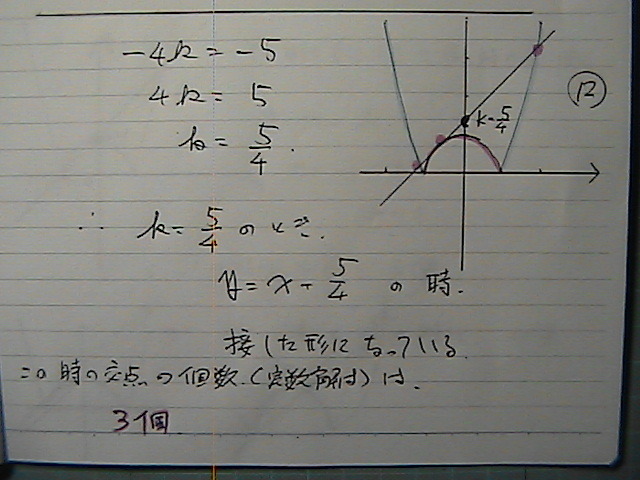 -4k = -5
4k = 5
k = 5/4.
⑫
k=5/4
∴ k = 5/4 のとき.
y = x + 5/4 の時.
接した形になっている.
この時の交点の個数.(実数解付)は.
3個